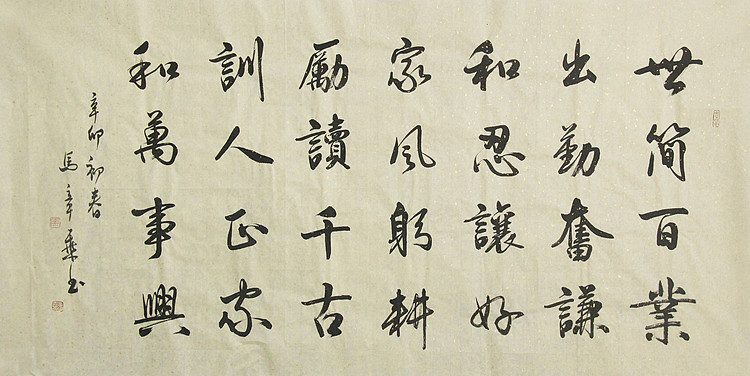 世简百業
出勤奮謙
和忍讓好
家风躬耕
勵讀千古
訓人正家
和萬事興
辛卯初春
馬章乗书